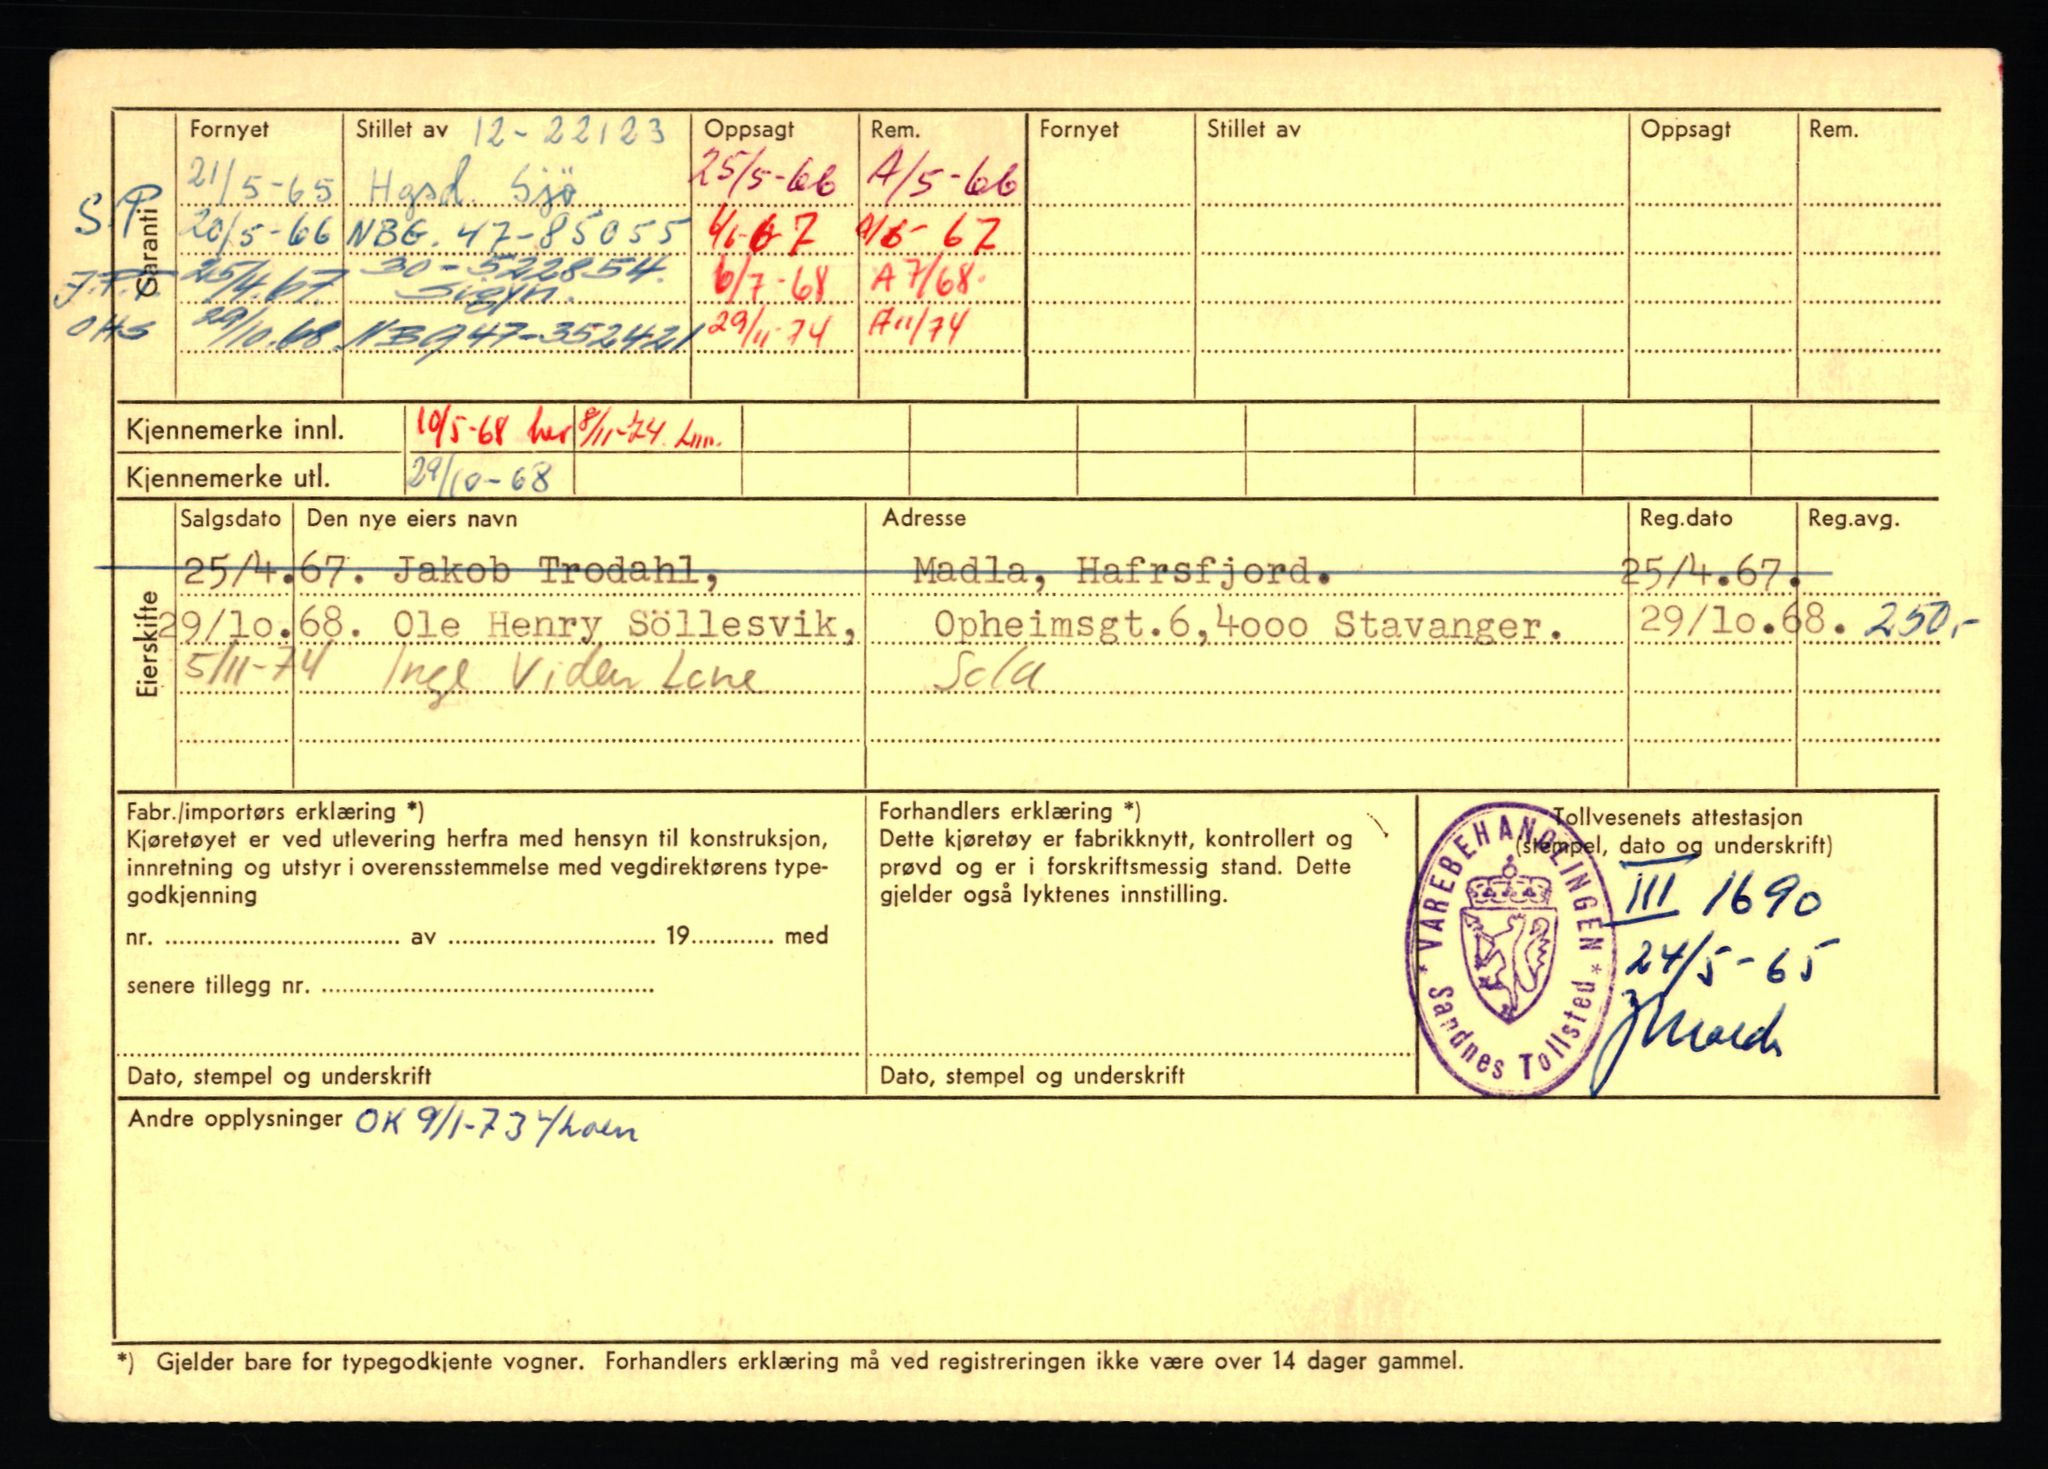 Garanti
Fornyet Stillet av 12-22123 Oppsagt Rem. Fornyet Stillet av Oppsagt Rem.
21/5-65 Hgsd. Sjö 25/5-66 A/5-66
S.P. 20/5-66 NBG. 47-85055 67 67
25/4.67. 30-522854. Sigyn. 6/7-68 A 7/68.
OHS 29/10.68. NBG 47-352421 29/11-74 A11/74
Kjennemerke innl. 10/5-68 her 8/11-74
Kjennemerke utl. 29/10-68
Eierskifte
Salgsdato Den nye eiers navn Adresse Reg.dato Reg.avg.
25/4.67. Jakob Trodahl, Madla, Hafrsfjord. 25/4.67.
29/lo.68. Ole Henry Söllesvik, Opheimsgt.6,4ooo Stavanger. 29/lo.68. 250,-
5/11-74 Inge Viden Lone Sola
Fabr./importørs erklæring *)
Kjøretøyet er ved utlevering herfra med hensyn til konstruksjon,
innretning og utstyr i overensstemmelse med vegdirektørens type-
godkjenning
nr. ........ av ........ 19........ med
senere tillegg nr. ........
Dato, stempel og underskrift
Forhandlers erklæring *)
Dette kjøretøy er fabrikknytt, kontrollert og
prøvd og er i forskriftsmessig stand. Dette
gjelder også lyktenes innstilling.
Dato, stempel og underskrift
Tollvesenets attestasjon
(stempel, dato og underskrift)
* VAREBEHANDLINGEN *
Sandnes Tollsted
III 1690
24/5-65
Andre opplysninger OK 9/1-73
*) Gjelder bare for typegodkjente vogner. Forhandlers erklæring må ved registreringen ikke være over 14 dager gammel.